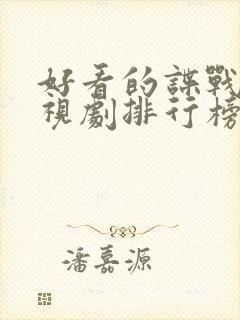 好看的諜戰
視劇排行榜
潘嘉源